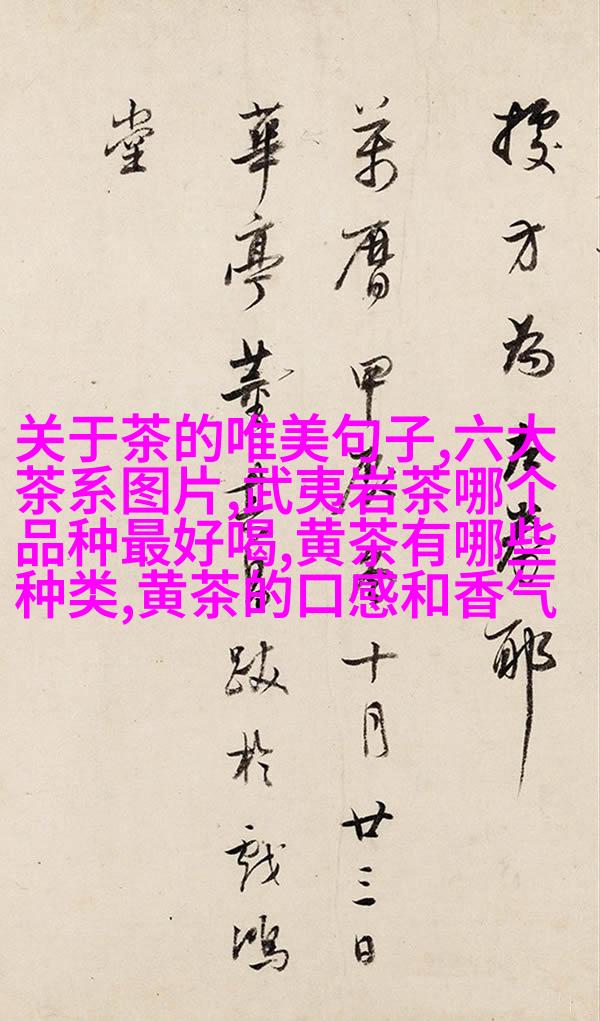 方為左券耶
萬曆甲辰冬十月廿三日
華亭董其昌跋於戲鴻
堂
关于茶的唯美句子,六大
茶系图片,武夷岩茶哪个
品种最好喝,黄茶有哪些
种类,黄茶的口感和香气